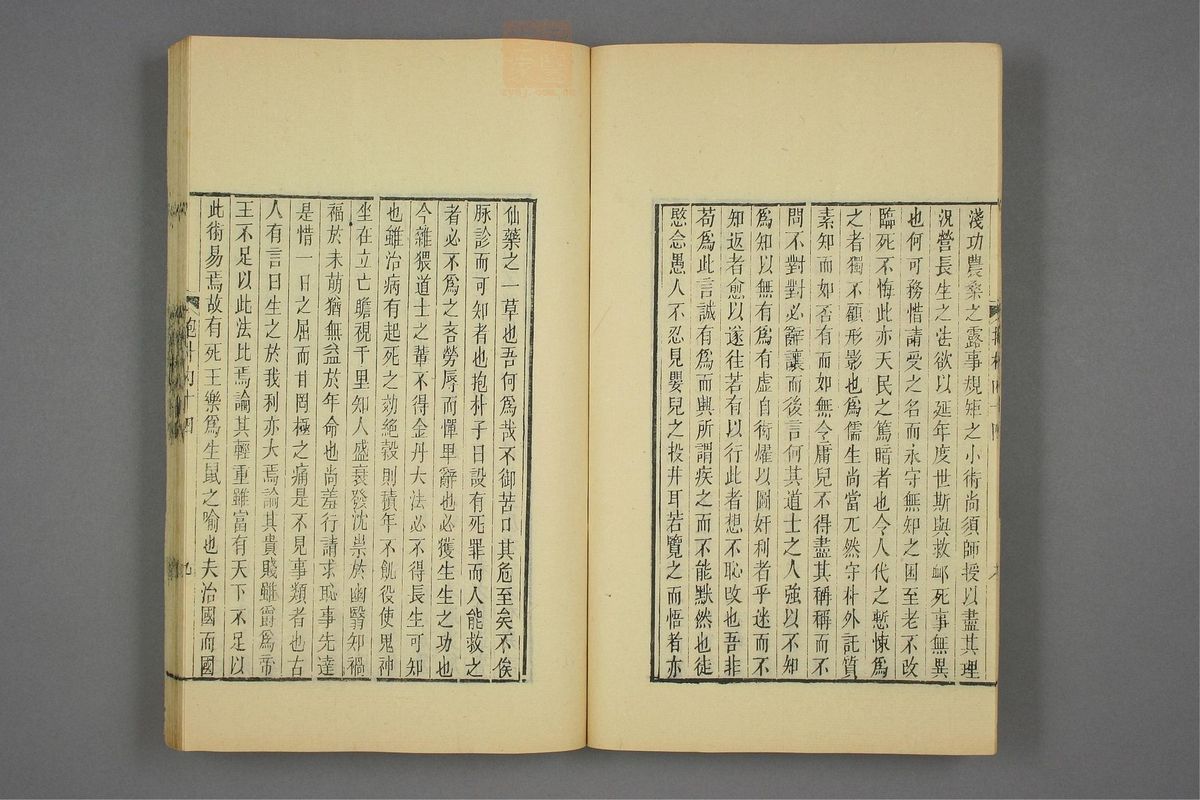 淺功農桑之露事規矩之小術尚須師授以盡其理
況營長生之法欲以延年度世斯與救卹死事無異
也何可務惜請受之名而永守無知之困至老不改
臨死不悔此亦天民之篤暗者也令人代之慙悚爲
之者獨不顧形影也爲儒生尚當兀然守朴外託質
素知而如否有而如無令庸兒不得盡其稱稱而不
問不對對必辭讓而後言何其道士之人強以不知
爲知以無有爲有虛自衒燿以圖奸利者乎迷而不
知返者愈以遂往若有以行此者想不恥改也吾非
苟爲此言誠有爲而興所謂疾之而不能默然也徒
愍念愚人不忍見嬰兒之投井耳若覽之而悟者亦
仙藥之一草也吾何爲哉不御苦口其危至矣不俟
脉診而可知者也抱朴子曰設有死罪而人能救之
者必不爲之吝勞辱而憚卑辭也必獲生生之功也
今雜猥道士之輩不得金丹大法必不得長生可知
也雖治病有起死之効絕穀則積年不飢役使鬼神
坐在立亡瞻視千里知人盛衰發沈祟於幽翳知禍
福於未萌猶無益於年命也尚羞行請求恥事先達
是惜一日之屈而甘罔極之痛是不見事類者也古
人有言曰生之於我利亦大焉論其貴賤雖爵爲帝
王不足以此法比焉論其輕重雖富有天下不足以
此術易焉故有死王樂爲生鼠之喻也夫治國而國
抱朴內十四
九